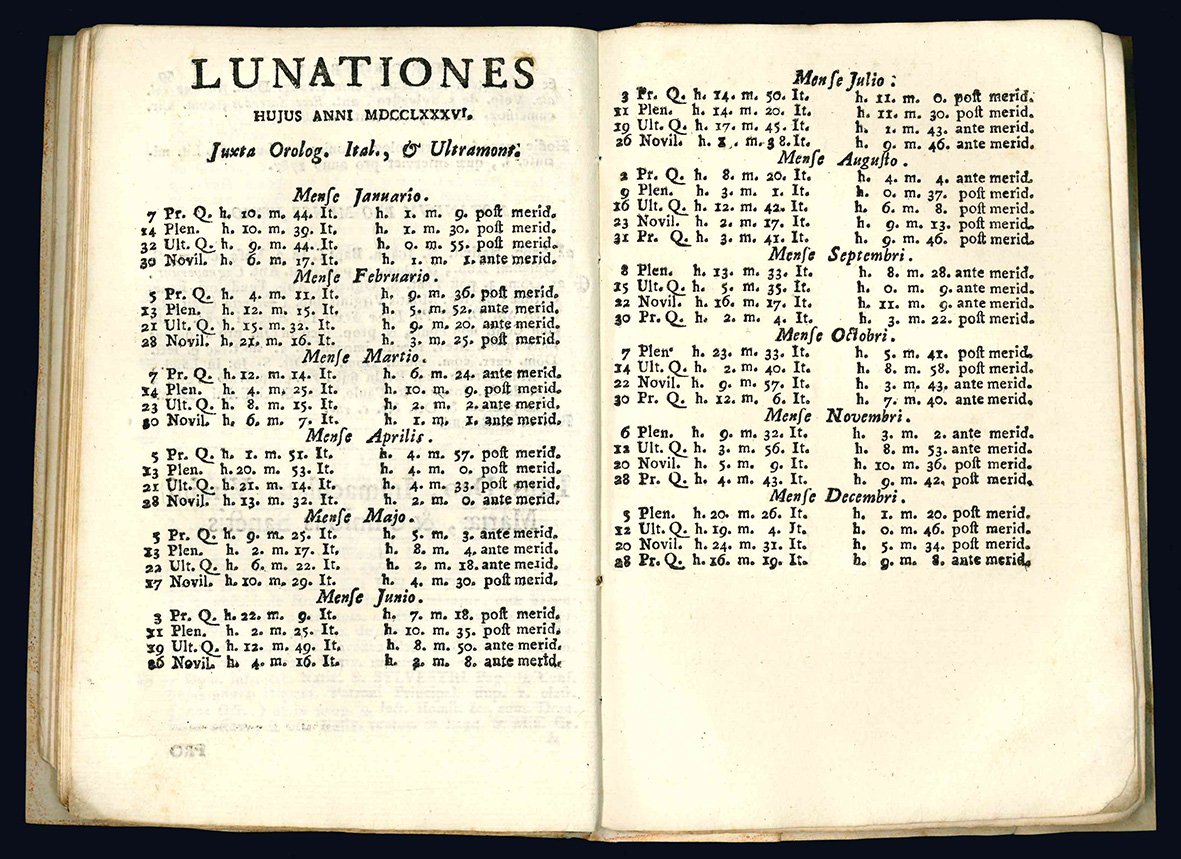 LUNATIONES
HUJUS ANNI MDCCLXXXVI.
Juxta Orolog. Ital., & Ultramont.
Mense Januario.
7 Pr. Q. h. 10. m. 44. It. h. 1. m. 9. post merid.
14 Plen. h. 10. m. 39. It. h. 1. m. 30. post merid.
32 Ult. Q. h. 9. m. 44. It. h. 0. m. 55. post merid.
30 Novil. h. 6. m. 17. It. h. 1. m. 1. ante merid.
Mense Februario.
5 Pr. Q. h. 4. m. 11. It. h. 9. m. 36. post merid.
13 Plen. h. 12. m. 15. It. h. 5. m. 52. ante merid.
21 Ult. Q. h. 15. m. 32. It. h. 9. m. 20. ante merid.
28 Novil. h. 21. m. 16. It. h. 3. m. 25. post merid.
Mense Martio.
7 Pr. Q. h. 12. m. 14. It. h. 6. m. 24. ante merid.
14 Plen. h. 4. m. 25. It. h. 10. m. 9. post merid.
23 Ult. Q. h. 8. m. 15. It. h. 2. m. 2. ante merid.
30 Novil. h. 6. m. 7. It. h. 1. m. 1. ante merid.
Mense Aprilis.
5 Pr. Q. h. 1. m. 51. It. h. 4. m. 57. post merid.
13 Plen. h. 20. m. 53. It. h. 4. m. 0. post merid.
21 Ult. Q. h. 21. m. 14. It. h. 4. m. 33. post merid.
28 Novil. h. 13. m. 32. It. h. 2. m. 0. ante merid.
Mense Majo.
5 Pr. Q. h. 9. m. 25. It. h. 5. m. 3. ante merid.
13 Plen. h. 2. m. 17. It. h. 8. m. 4. ante merid.
22 Ult. Q. h. 6. m. 22. It. h. 2. m. 18. ante merid.
17 Novil. h. 10. m. 29. It. h. 4. m. 30. post merid.
Mense Junio.
3 Pr. Q. h. 22. m. 9. It. h. 7. m. 18. post merid.
11 Plen. h. 2. m. 25. It. h. 10. m. 35. post merid.
19 Ult. Q. h. 12. m. 49. It. h. 8. m. 50. ante merid.
26 Novil. h. 4. m. 16. It. h. 2. m. 8. ante merid.
Mense Julio:
3 Pr. Q. h. 14. m. 50. It. h. 11. m. 0. post merid.
11 Plen. h. 14. m. 20. It. h. 11. m. 30. post merid.
19 Ult. Q. h. 17. m. 45. It. h. 1. m. 43. ante merid.
26 Novil. h. 1. m. 38. It. h. 9. m. 46. ante merid.
Mense Augusto.
2 Pr. Q. h. 8. m. 20. It. h. 4. m. 4. ante merid.
9 Plen. h. 3. m. 1. It. h. 0. m. 37. post merid.
16 Ult. Q. h. 12. m. 42. It. h. 6. m. 8. post merid.
23 Novil. h. 2. m. 17. It. h. 9. m. 13. post merid.
31 Pr. Q. h. 3. m. 41. It. h. 9. m. 46. post merid.
Mense Septembri.
8 Plen. h. 13. m. 33. It. h. 8. m. 28. ante merid.
15 Ult. Q. h. 5. m. 35. It. h. 0. m. 9. ante merid.
22 Novil. h. 16. m. 17. It. h. 11. m. 9. ante merid.
30 Pr. Q. h. 2. m. 4. It. h. 3. m. 22. post merid.
Mense Octobri.
7 Plen. h. 23. m. 33. It. h. 5. m. 41. post merid.
14 Ult. Q. h. 2. m. 40. It. h. 8. m. 58. post merid.
22 Novil. h. 9. m. 57. It. h. 3. m. 43. ante merid.
30 Pr. Q. h. 12. m. 6. It. h. 7. m. 40. ante merid.
Mense Novembri.
6 Plen. h. 9. m. 32. It. h. 3. m. 2. ante merid.
12 Ult. Q. h. 3. m. 56. It. h. 8. m. 53. ante merid.
20 Novil. h. 5. m. 9. It. h. 10. m. 36. post merid.
28 Pr. Q. h. 4. m. 43. It. h. 9. m. 42. post merid.
Mense Decembri.
5 Plen. h. 20. m. 26. It. h. 1. m. 20. post merid.
12 Ult. Q. h. 19. m. 4. It. h. 0. m. 46. post merid.
20 Novil. h. 24. m. 31. It. h. 5. m. 34. post merid.
28 Pr. Q. h. 16. m. 19. It. h. 9. m. 8. ante merid.